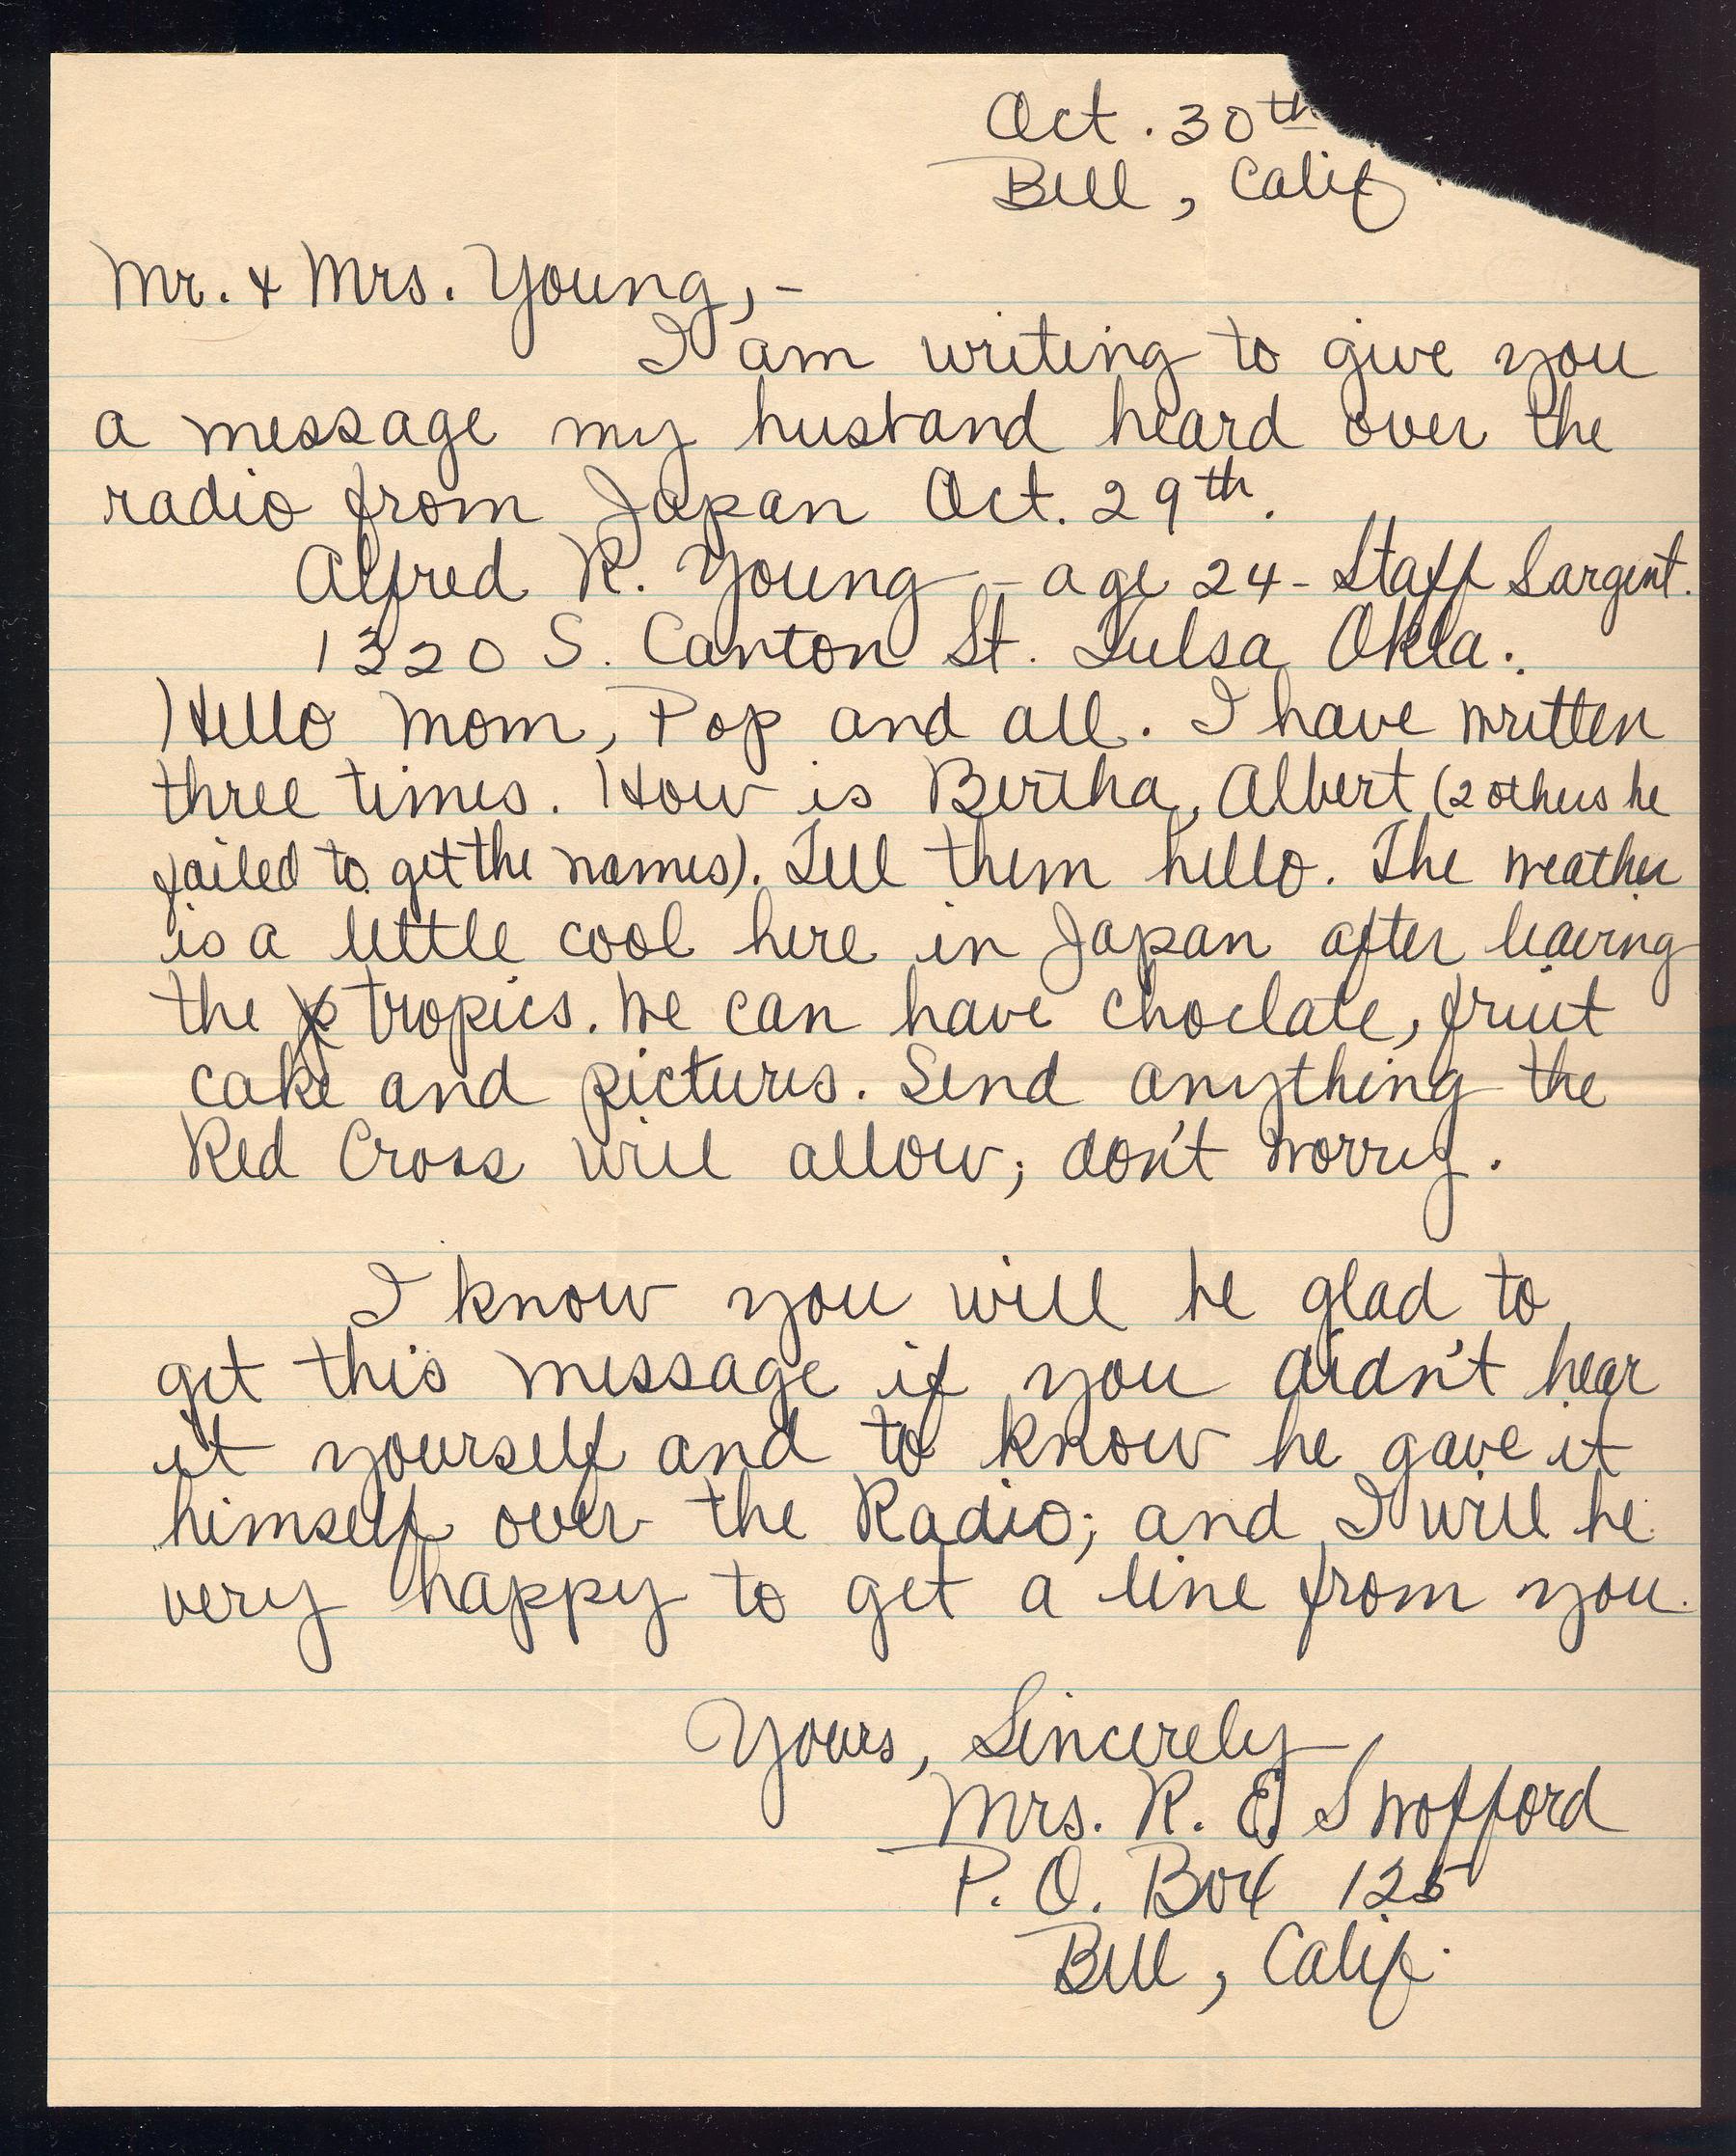 Oct. 30th
Bell, Calif
Mr. & Mrs. Young,-
I am writing to give you
a message my husband heard over the
radio from Japan Oct. 29th.
Alfred R. Young - age 24 - Staff Sargent.
1320 S. Canton St. Tulsa Okla.
Hello Mom, Pop and all. I have written
three times. How is Bertha, Albert (2 others he
failed to get the names). Tell them hello. The weather
is a little cool here in Japan after leaving
the tropics. We can have choclate, fruit
cake and pictures. Send anything the
Red Cross will allow; don't worry.
I know you will be glad to
get this message if you didn't hear
it yourself and to know he gave it
himself over the Radio; and I will be
very happy to get a line from you.
Yours, Sincerely
Mrs. R. E. Swofford
P. O. Box 125
Bell, Calif.